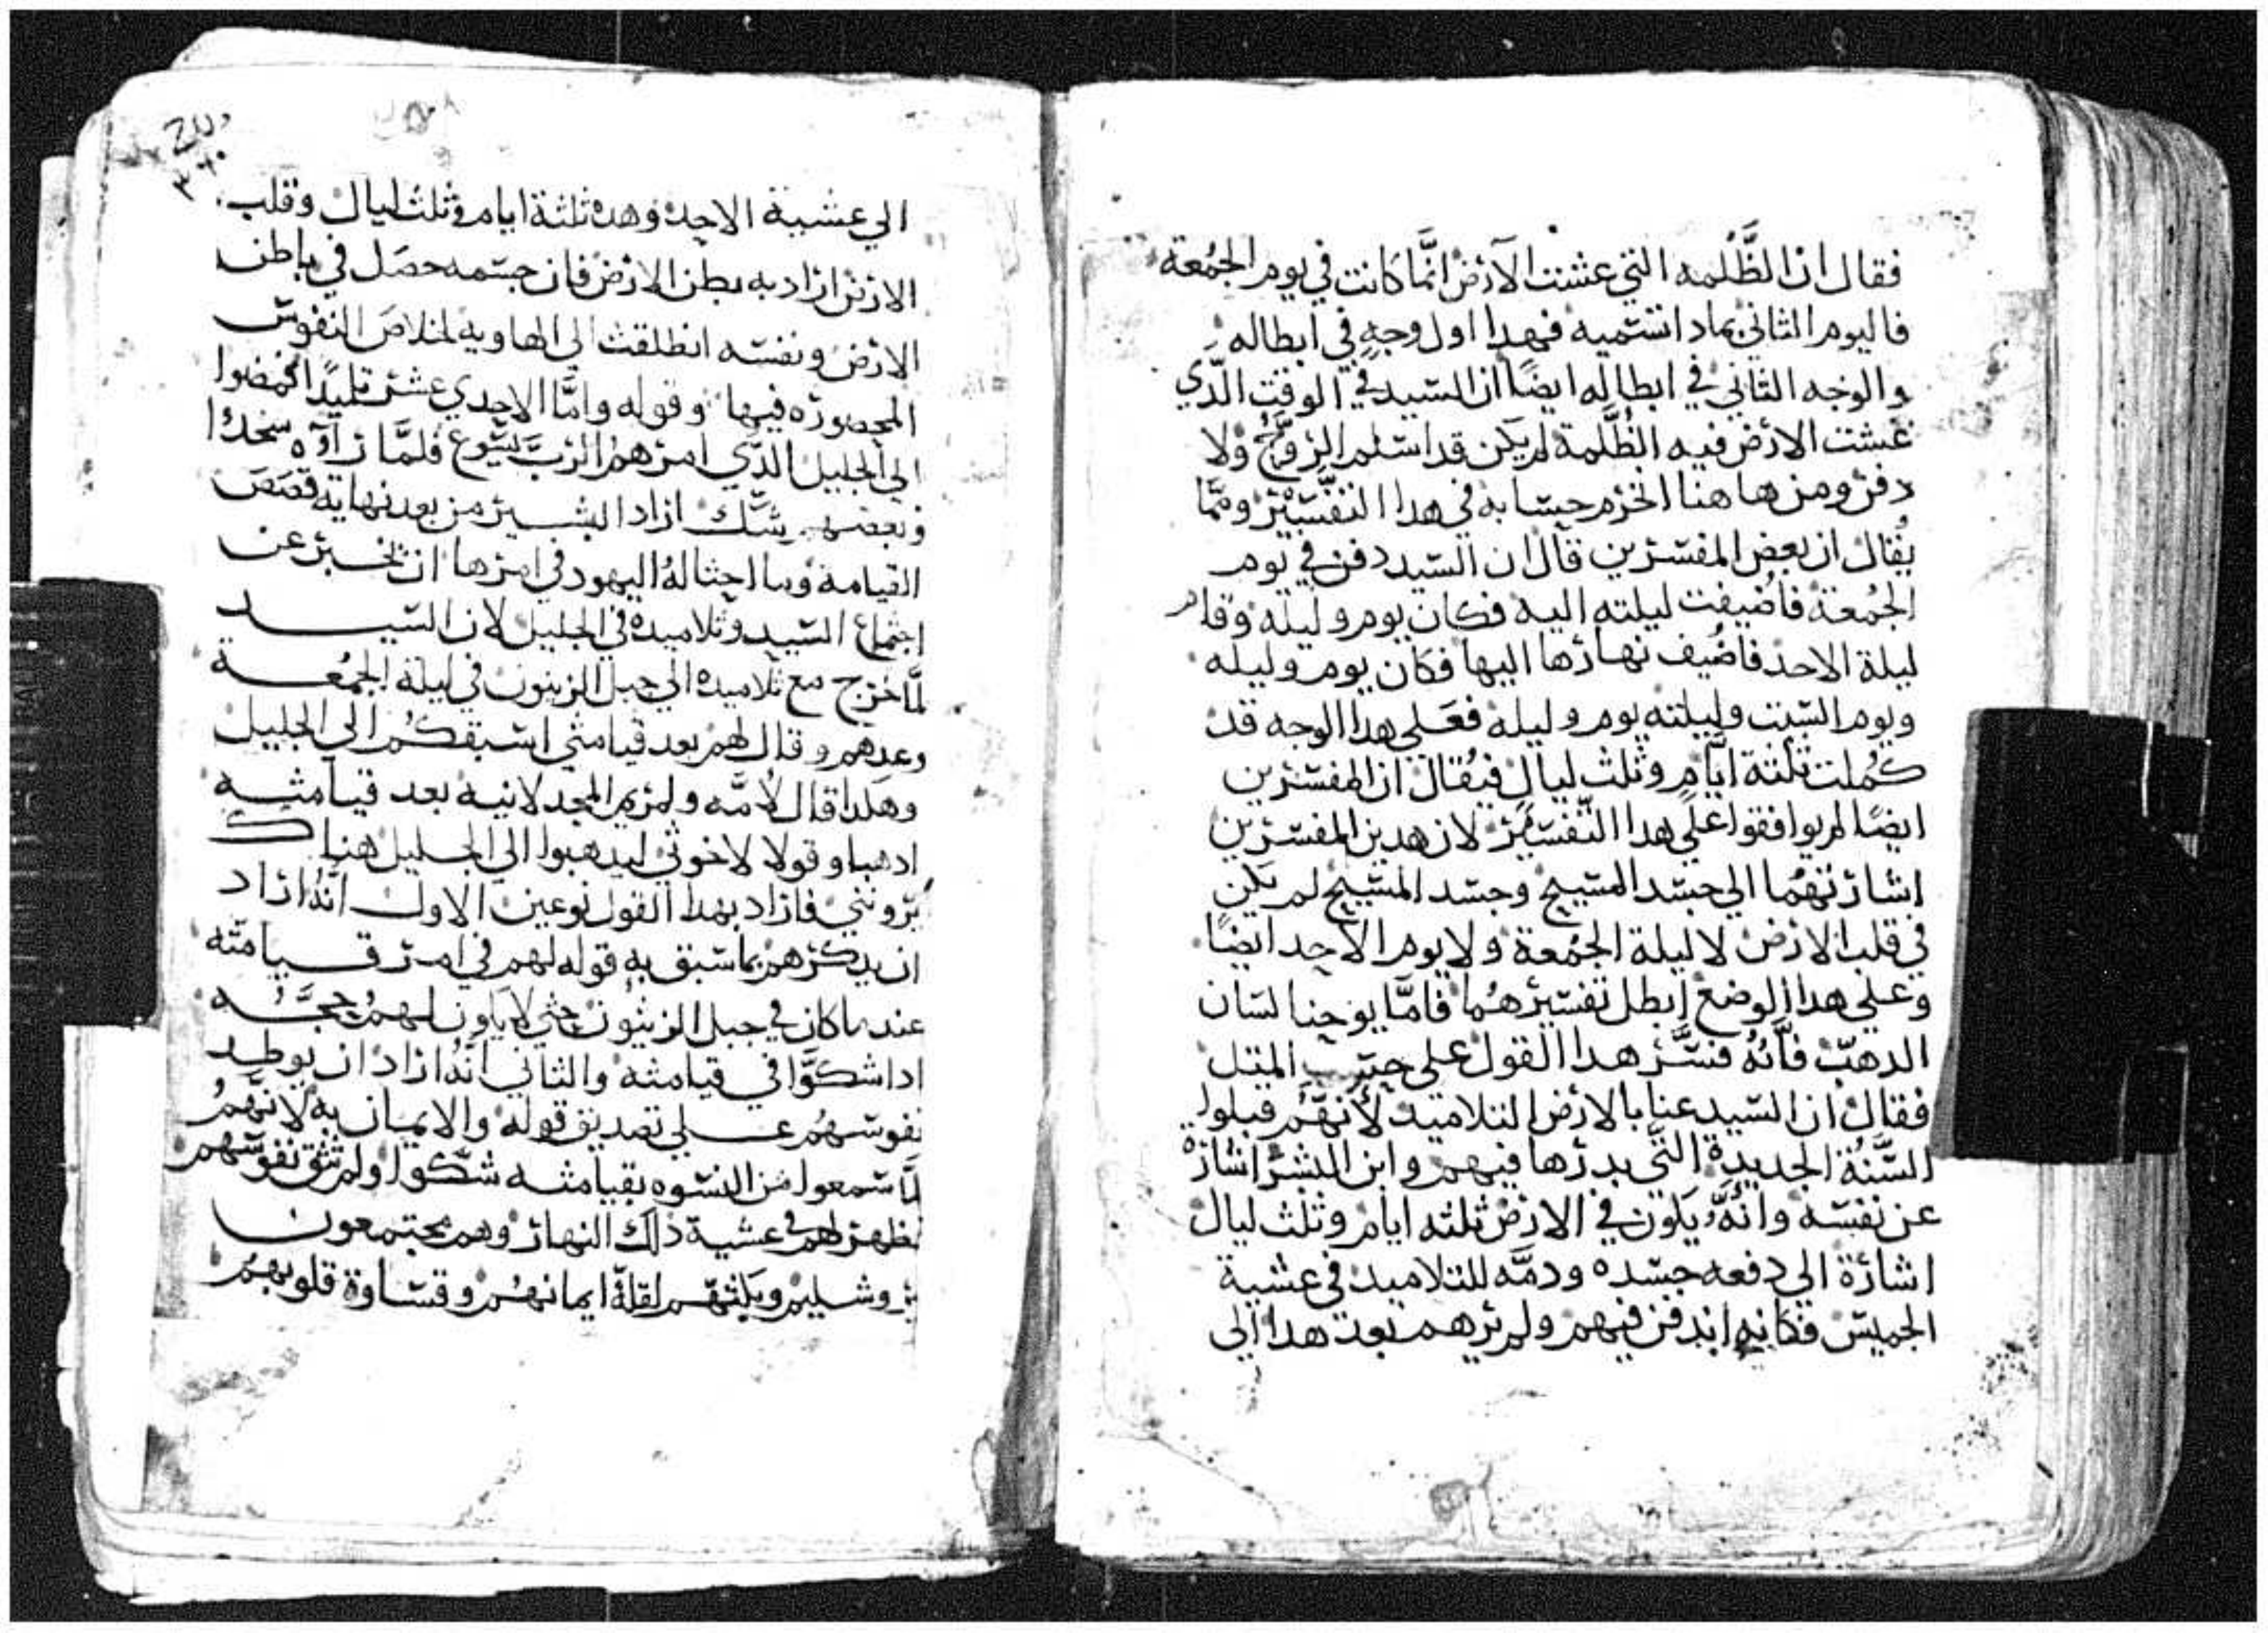 فقال ان الظَّلمه التي عشت الآرض انَّما كانت في يوم الجمُعة
فاليوم الثاني بماد انستميه فهدا اول وجهٍ في ابطاله
والوجه الثاني في ابطاله ايضًا ان السيد في الوقت الدَّي
غشت الارض فيه الظُلَّمة لم يكن قد اسلم الروَّحُ ولا
دفن ومن هاهنا انخرم حسابه في هدا التفسيَّر وممَّا
يُقال ان بعض المفسرين قال ان السّيد دفن في يوم
الجُمعة فاضُيفت ليلته اليه فكان يوم وليله وقام
ليلة الاحد فاضُيف نهارها اليها فكان يوم وليله
ويوم السّبت وليلته يوم وليله فعَلي هدا الوجه قد
كمُلت ثلثة ايَّام وثلث ليالٍ فيُقال ان المفسّرين
ايضًا لم يوافقوا علَي هدا التّفسيرّ لان هدين المفسّرين
اشارتهُما الي جسّد المسّيح وجسّد المسّيح لم يكن
في قلب الارض لا ليلة الجمُعة ولا يوم الاحد ايضًا
وعلي هدا الوضع ابطل تفسيرهُما فامَّا يوحنا لسان
الدهبّ فانَّهُ فسَّر هدا القول على حسّب المتل
فقال ان السّيد عنا بالارض التلاميد لأنهَّم قبلوا
السَّنهُ الجديدة التَّي بدرها فيهم وابن البشر اشاره
عن نفسّه وانَّهُ يكون في الارض ثلثه ايام وثلث ليال
اشارة الي دفعه جسّده ودمَّه للتلاميد في عشية
الخميس فكانه اندفن فيهم ولم يرهم بعد هدا الي
الي عشية الاحد وهده ثلثة ايام وثلث ليال وقلب
الارض اراد به بطن الارض فان جسّمه حصَل في باطن
الارض ونفسّه انطلقت الي الهاويه لخلاصَ النفوسّ
المحصوره فيها وقوله وامَّا الاحدي عشر تليدًا فمضوا
الي الجليل الدَّي امرهُم الربَّ يسّوع فلمَّا راوَه سجدوا
وبعضهم شَّك اراد البشير من بعد نهاية قصَصَ
القيامة وما احتالهُ اليهود في امرها ان يخبر عن
اجتماع السّيد وتلاميده في الجليل لان السّيد
لمَّا خرج مع تلاميده الي جبل الزيتون في ليلة الجمُعة
وعدهم وقال لهم بعد قيامتي اسّبقكمُ الي الجليل
وهكدا قال لأمَّه ولمريم المجدلانيه بعد قيامته
ادهبا وقولا لاخوتي ليدهبوا الي الجليل هناك
يروني فاراد بهدا القول نوعين الاول انَّهُ اراد
ان يدكرهم بما سّبق به قوله لهم في امر قيامتّه
عند ما كان في جبل الزيتون حتي لا يكون لهمُ حجَّه
ادا شكوَّا في قيامته والثاني انَّهُ اراد ان يوطد
نفوسّهمُ علي تصديق قوله والايمان به لانَّهمُ
لمَّا سّمعوا من النسّوه بقيامته شكّوا ولم تثق نفوسّهم
فظهر لهم في عشية ذلك النهار وهم مجتمعون
يروشليم وبكتهّم لقلَّة ايمانهُم وقسّاوة قلوبهمُ